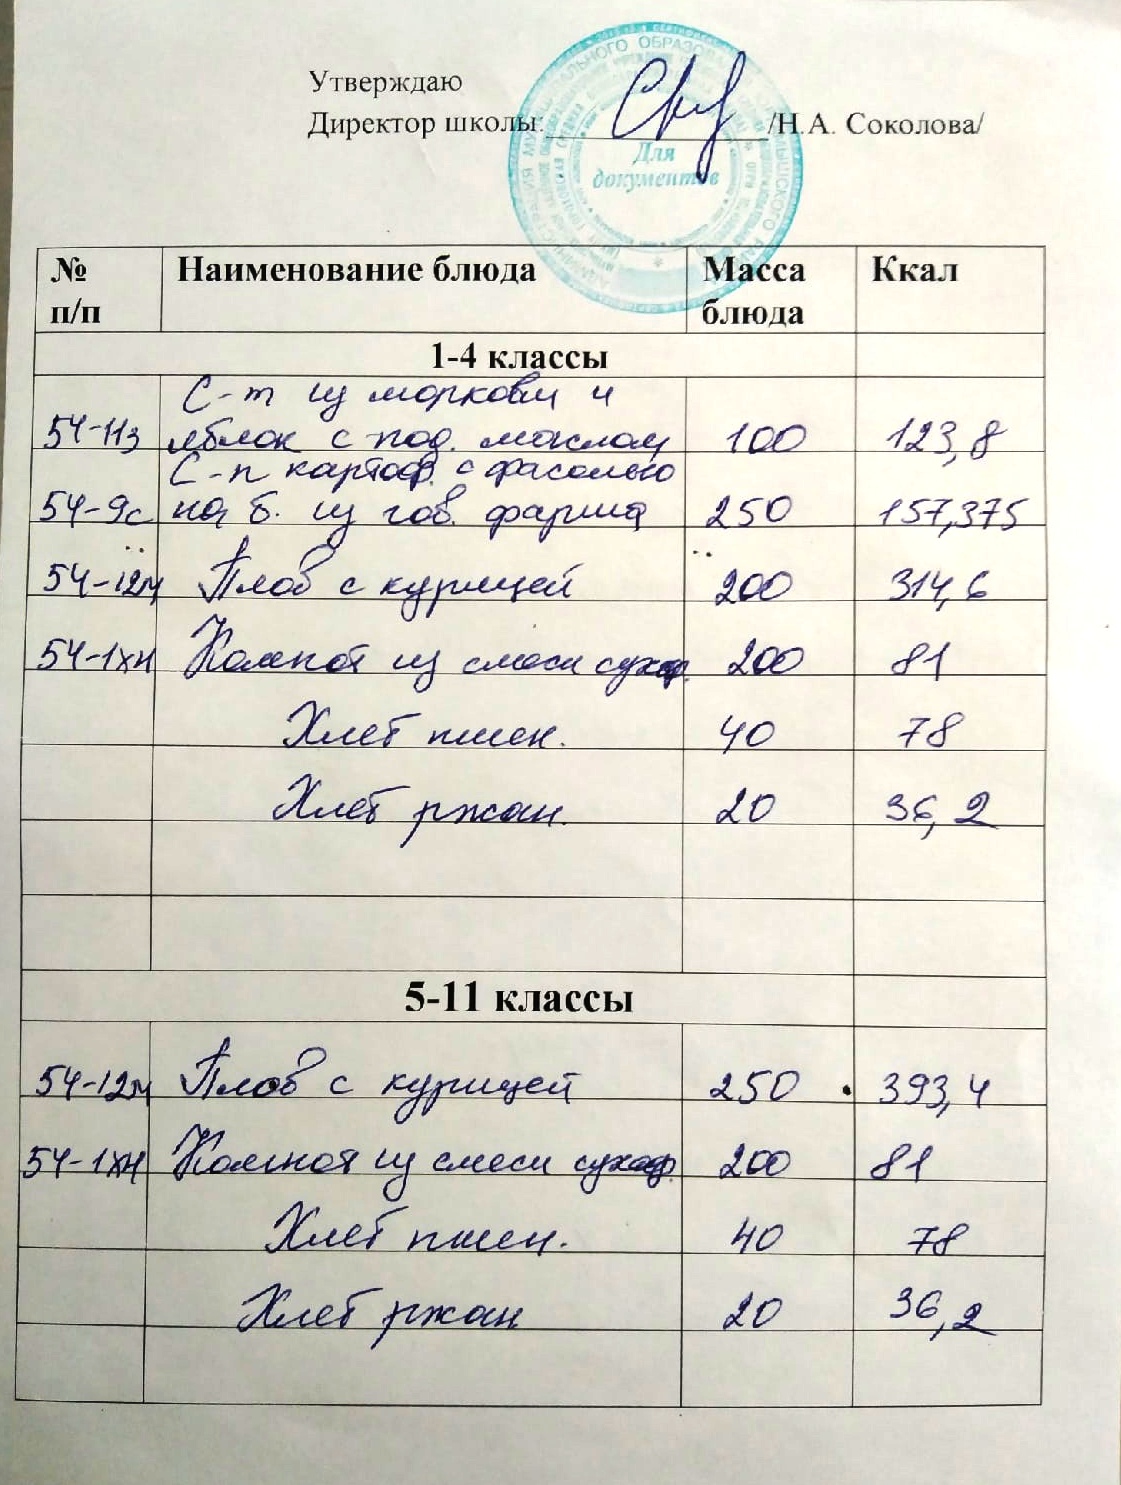 Утверждаю
Директор школы: /Н.А. Соколова/
Для
документов
№ п/п Наименование блюда Масса блюда Ккал
1-4 классы
С-т из моркови и
54-11з яблок с под. маслом 100 123,8
С-п картоф. с фасолью
54-9с на б. из гов. фарша 250 157,375
54-12м Плов с курицей 200 314,6
54-1хн Компот из смеси сухоф. 200 81
Хлеб пшен. 40 78
Хлеб ржан. 20 36,2
5-11 классы
54-12м Плов с курицей 250 393,4
54-1хн Компот из смеси сухоф. 200 81
Хлеб пшен. 40 78
Хлеб ржан 20 36,2